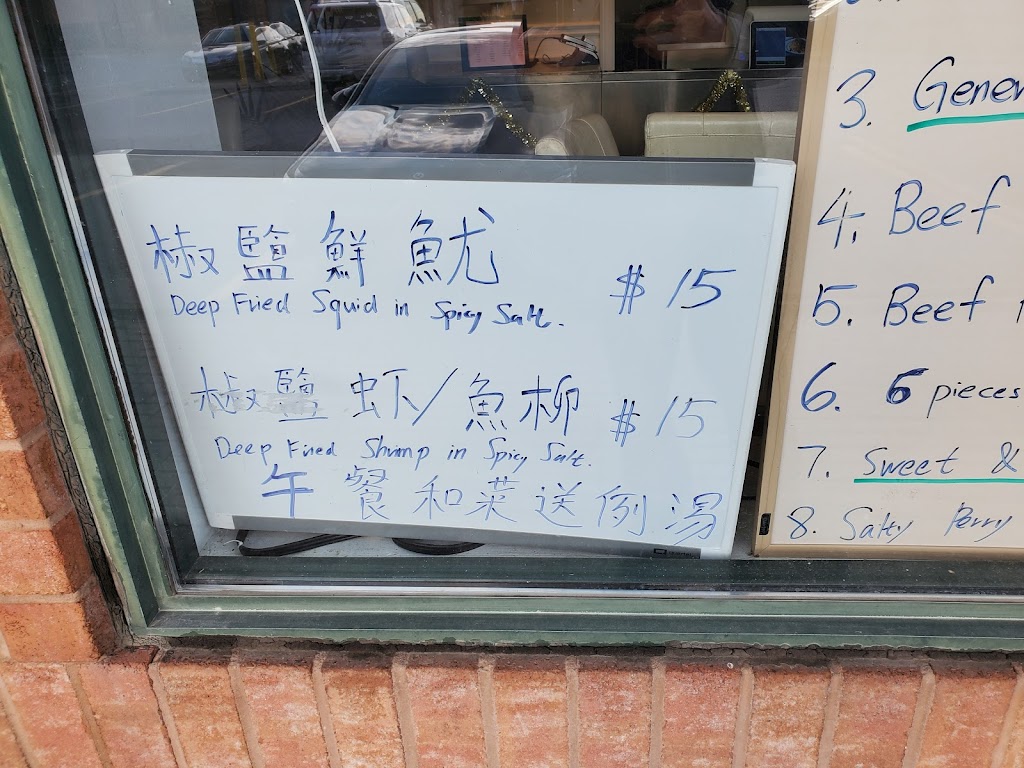 椒鹽鮮魷
$15
Deep Fried Squid in Spicy Salt.
椒鹽虾/魚柳
$15
Deep Fried Shrimp in Spicy Salt.
午餐和菜送例湯
3. Gener
4. Beef
5. Beef
6. 6 pieces
7. Sweet &
8. Salty Perry